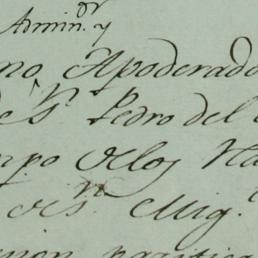 Admin.or y
no Apoderado
de S.n Pedro del
rpo de los Na
de S.n Mig.l